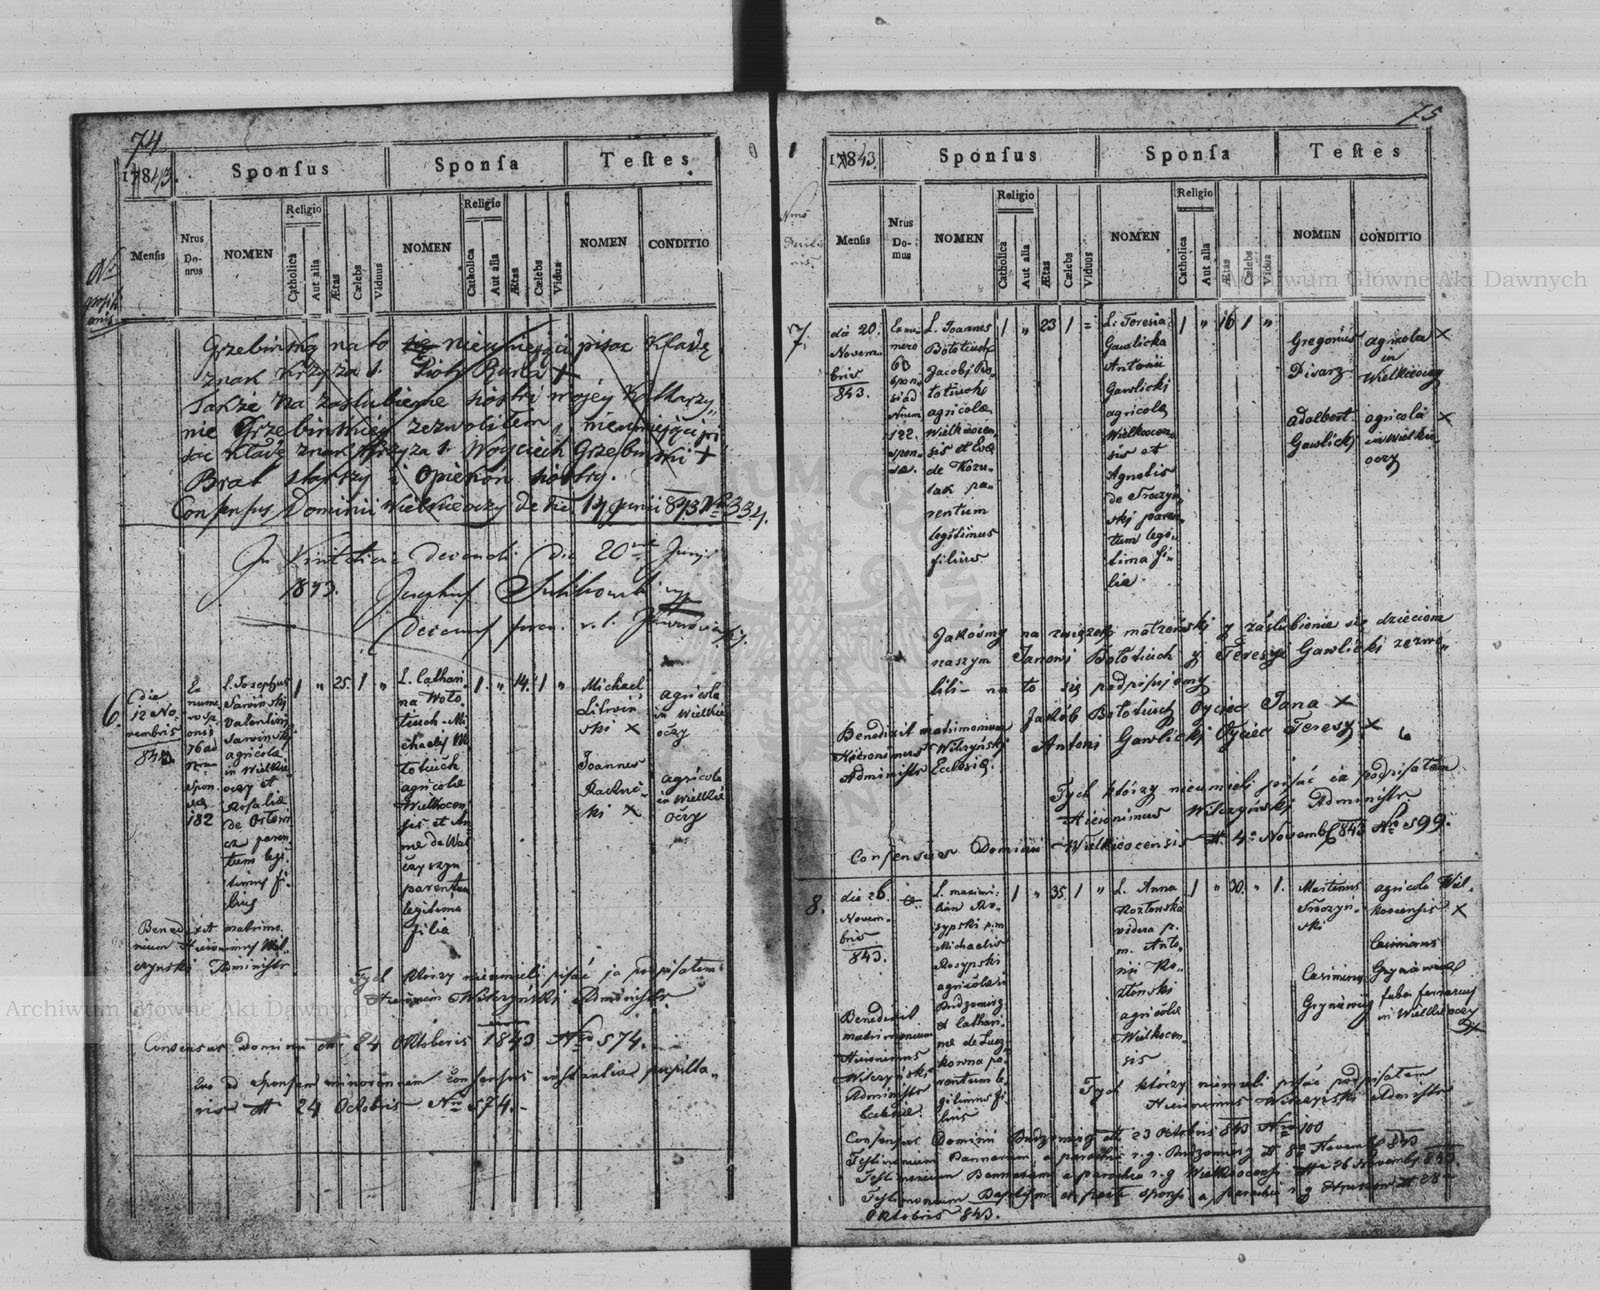 74
17843.
Sponsus
Sponsa
Testes
Mensis
Nrus Do- mus
NOMEN
Religio
Catholica
Aut alia
Ætas
Cælebs
Viduus
NOMEN
Religio
Catholica
Aut alia
Ætas
Cælebs
Vidua
NOMEN
CONDITIO
Grzebinską na to nieumiejąci pisac kładę
znak krzyża + Piotr Bura +
Także na zaslubienie siostri mojey Katharzy
nie Grzebinskiey zezwoliłem, nieumiejąci pi
sac kładę znak krzyza + Woyciech Grzebinski +
Brat starszy i Opiekon siostry.
Consensus Dominii Wielkieoczy de die 14 Junii 843 Nro 334.
die 20 Junij
1843. Josephus
6.
die
12 No-
vembris
843
Ex
nume
ro sp
onsi
76 ad
Num
spon
sæ
182
L. Josephus
Sawinski
Valentini
Sawinski
agricolæ
in Wielkie
oczy et
Rosaliæ
de
paren
tum legi
timus fi
lius
1 " 25. 1 "
L. Cathari
na Woto
tiuch Mi
chaeli Wo
totiuch
agricolæ
Wielkocen
sis et An
næ de
parentum
legitima
filia
1. " 14. 1 "
Michael
Litwin
ski X
agricola
in Wielkie
oczy
Joannes
ski X
agricola
in Wielkie
oczy
Benedixit matrimo
nium Hieronimus Wil
czynski Administr
Tych ktorzy nieumieli pisać ja podpisałem
Hieronim Wilczyński Administr
Consensus Dominii dtt 24 Oktobris 1843 Nro 574.
Quo ad Sponsam minorennem Consensus instantiæ pupilla
ris dtt 24 Octobris Nro 574.
75
17843.
Sponsus
Sponsa
Testes
Mensis
Nrus Do- mus
NOMEN
Religio
Catholica
Aut alia
Ætas
Cælebs
Viduus
NOMEN
Religio
Catholica
Aut alia
Ætas
Cælebs
Vidua
NOMEN
CONDITIO
7.
die 20.
Novem-
bris
843.
Ex nu-
mero
60
spon-
si ad
Num
122.
spon-
sæ.
L. Joannes
Bołotiuch
Jacobi Bo-
łotiuch
agricolæ
Wielkocen-
sis et Evæ
de Kozu-
lak pa-
rentum
legitimus
filius
1 " 23 1 =
L. Teresia
Gawlicka
Antonii
Gawlicki
agricolæ
Wielkocen-
sis et
Agnetis
de Troczyń-
ski paren-
tum legi-
tima fi-
lia.
1 " 16 1 "
Gregorius
Pisarz
agricola X
in
Wielkieoczy
Adalbert
Gawlicki
agricola X
in Wielkie
oczy
Jakośmy na związek małżeński y záslubienie się dzieciom
naszym Janowi Bołotiuch y Teresyi Gawlicki zezwo-
lili - na to się podpisujemy
Jakób Bołotiuch Oyciec Jana X
Antoni Gawlicki Oyciec Teresy X
Benedixit matrimonium
Hieronimus Wilczyński
Administr Ecclesiæ
Tych którzy nieumieli pisać ja podpisałem
Hieronimus Wilczyński Administr
Consensus Dominii Wielkieocensis dtt 4 Novemb 843 Nro 599.
8.
die 26.
Novem-
bris
843.
L. Maximi-
lian Ro-
sypski p.m.
Michaelis
Rosypski
agricolæ in
Budzomierz
et Cathari-
næ de
pa-
rentum le-
gitimus fi-
lius
1 " 35. 1 "
L. Anna
Kozłonska
vidua p.
m. Anto-
nii Ko-
złonski
agricolæ
Wielkocen-
sis
1 " 30. " 1.
Martinus
Troczyń-
ski
agricola Wiel-
kocensis X
Casimirus
Casimirus
faber ferrarius
in Wielkieoczy
X
Benedixit
matrimonium
Hieronimus
Wilczyński
Administr
Ecclesiæ
Tych którzy nieumieli pisać podpisałem
Hieronimus Wilczyński Administr
Consensus Dominii Budzomierz dtt 23 Octobris 843 Nro 100
Testimonium Bannorum a parochia r.g. Budzomierz dtt Novemb 843
Testimonium Bannorum a parochia r.g Wielkoocensi dtt 26 Novemb 843.
Testimonium Baptismi ex parte sponsi a parochia r.g dtt 28
Oktobris 843.
Archiwum Główne Akt Dawnych
Archiwum Główne Akt Dawnych